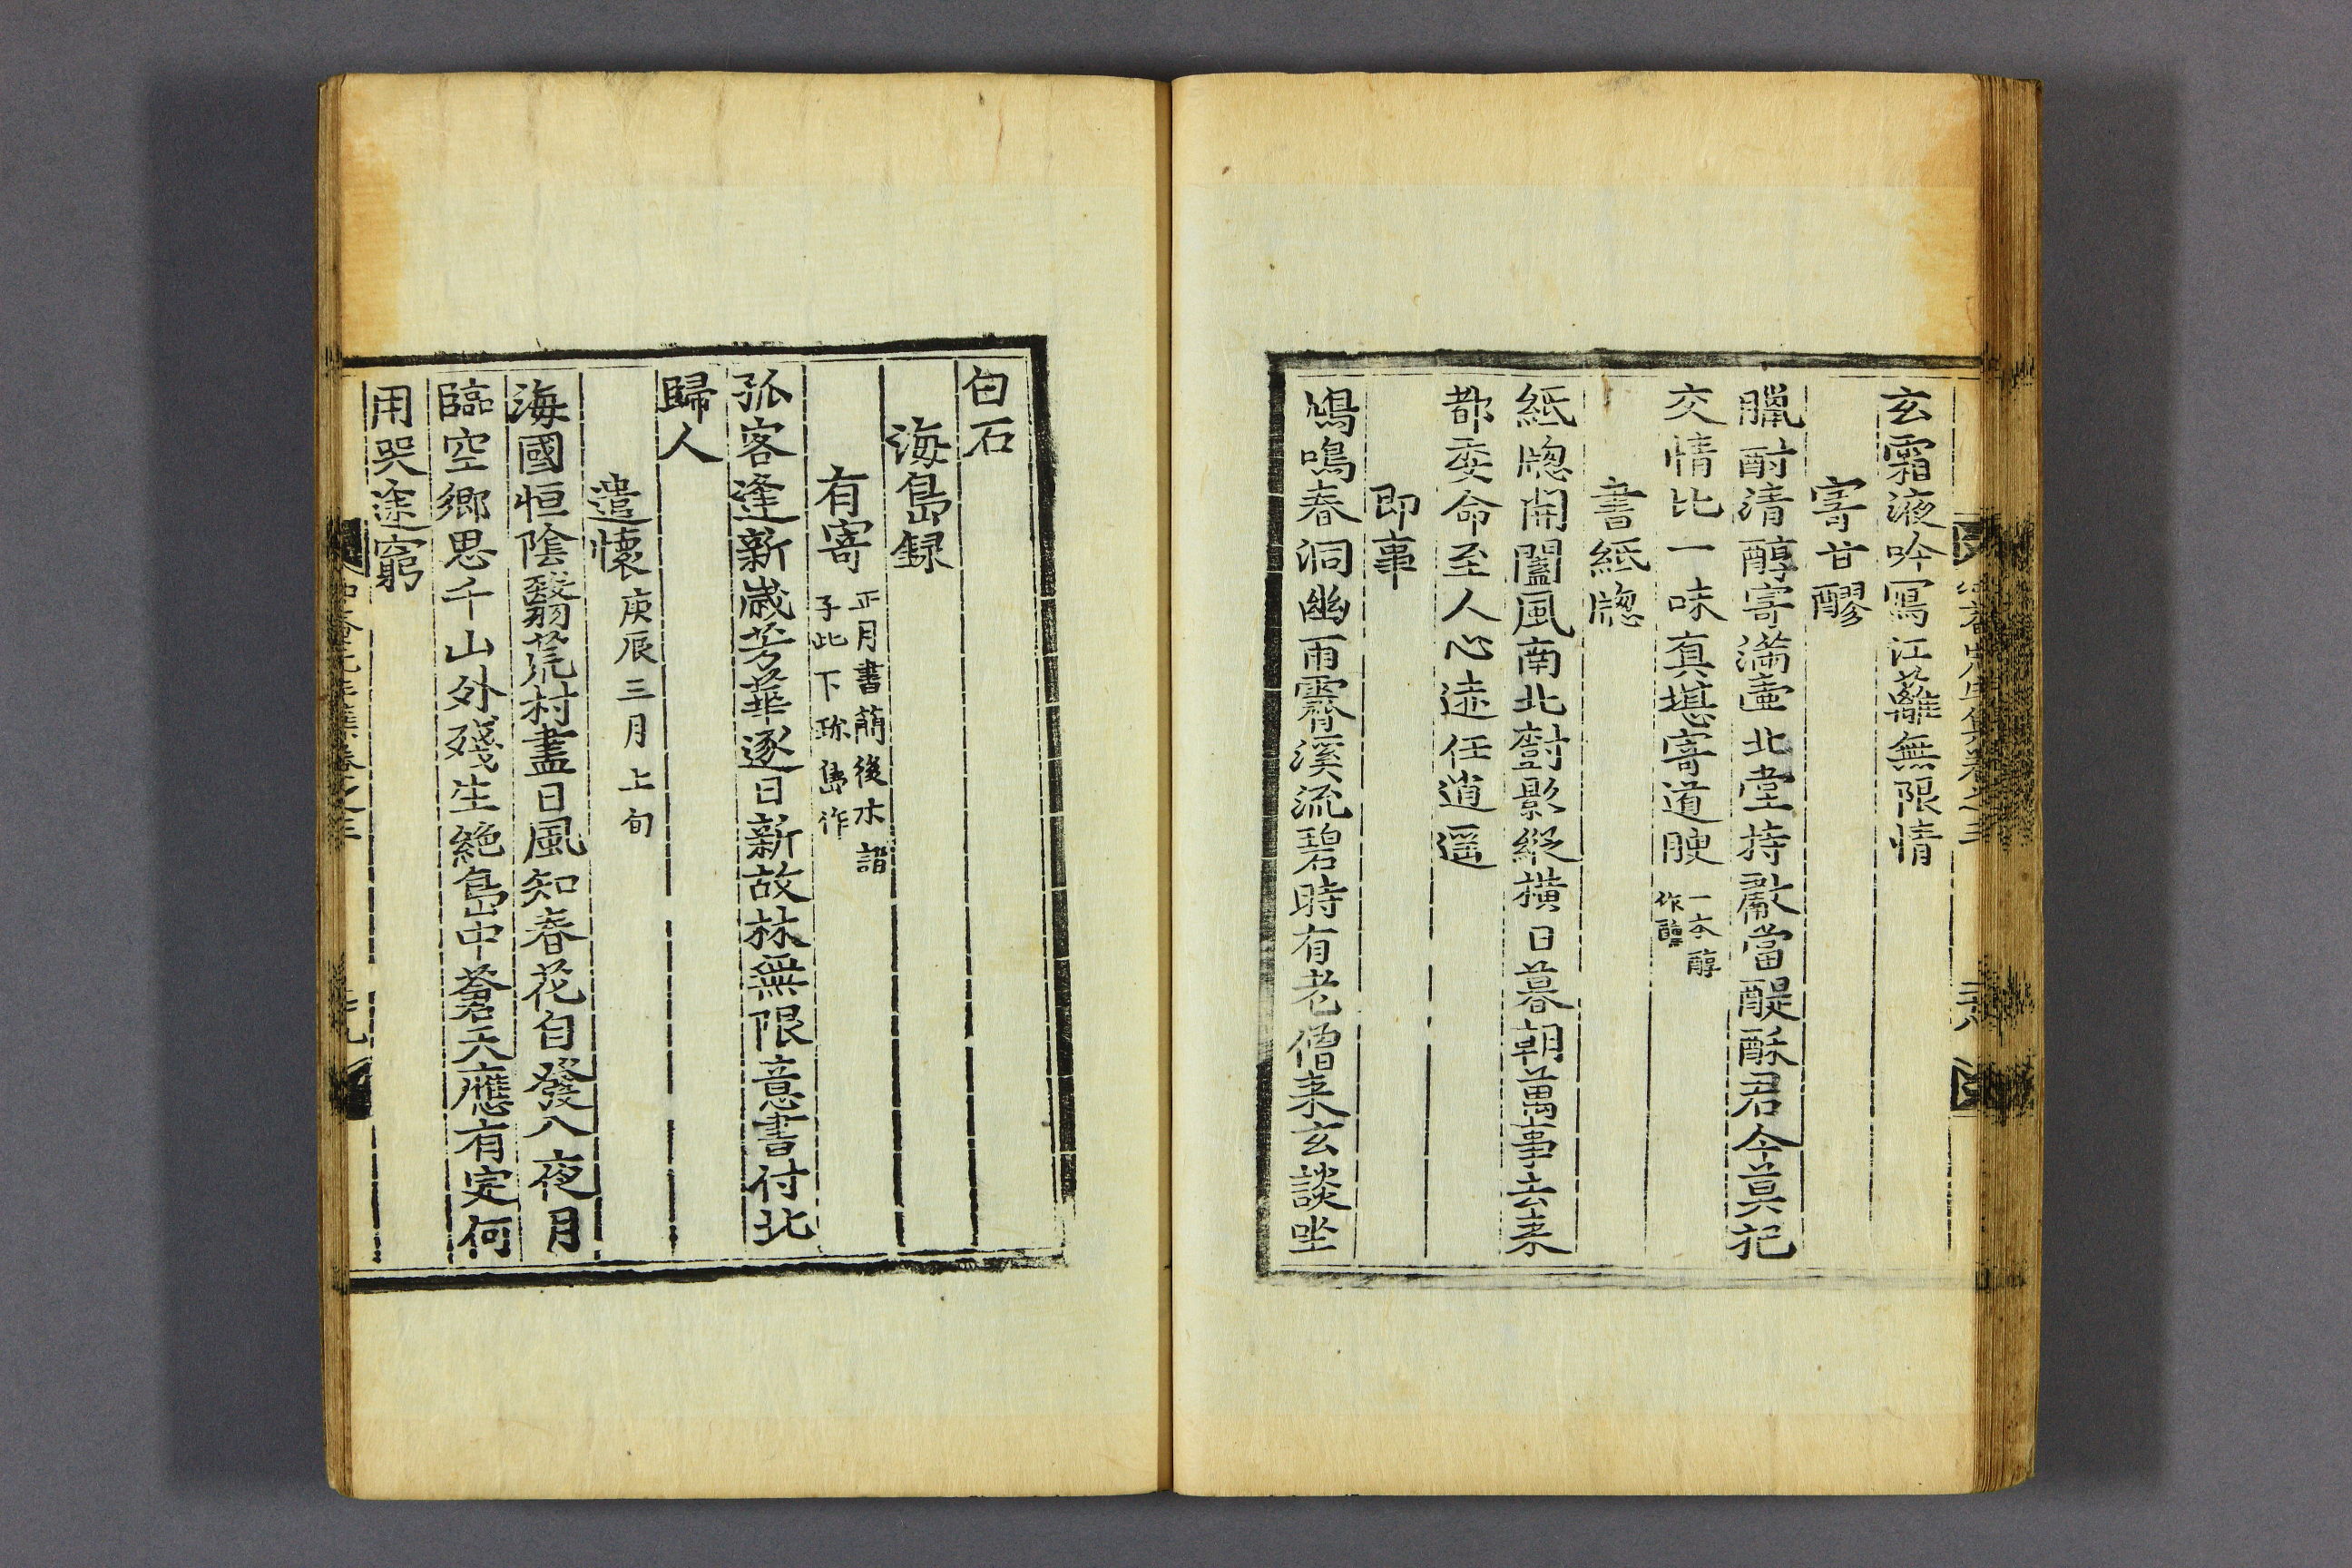 玄霜液吟寫江蘺無限情
寄甘醪
臘酎清醇寄滿壷北堂持獻當醍酥君今莫把
交情比一味真堪寄道腴
一本醇
作醲
書紙牕
紙牕開闔風南北對影縱橫日暮朝萬事去来
都委命至人心遠任逍遥
即事
鳩鳴春洞幽雨霽溪流碧時有老僧来玄談坐
白石
海島録
有寄
正月書蕳後木詣
子此下珎島作
孤客逢新歲芳華逐日新故林無限意書付北
歸人
遣懷
庚辰三月上旬
海國恒陰翳荒村盡日風知春花自發入夜月
臨空鄉思千山外殘生絶島中蒼天應有定何
用哭途窮